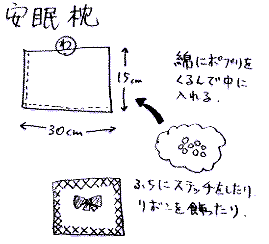 安眠枕
わ
15cm
30cm
綿にポプリを
くるんで中に
入れる.
ふちにステッチをしたり
リボンを飾ったり.